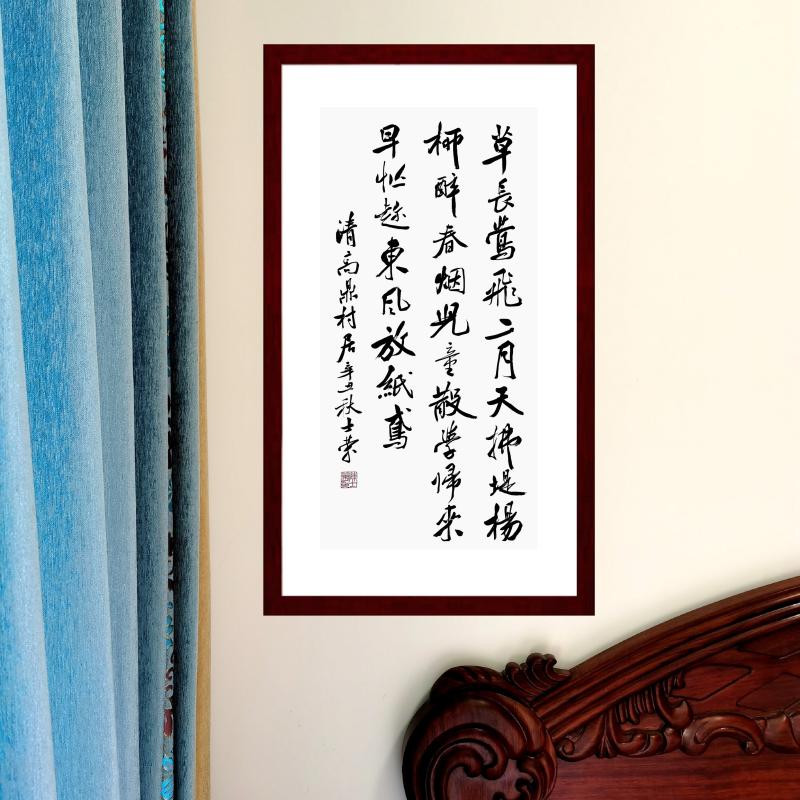 草長鶯飛二月天拂堤楊
柳醉春烟兒童散學歸来
早忙趁東风放紙鳶
清高鼎村居辛丑秋士荣